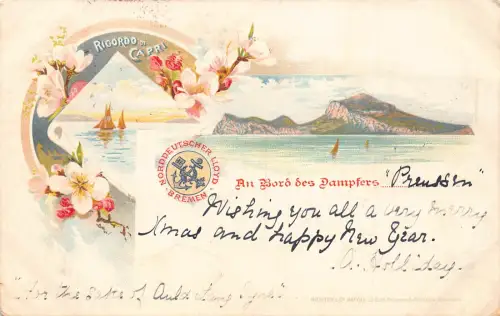 RICORDO DI CAPRI
NORDDEUTSCHER LLOYD BREMEN
An Bord des Dampfers "Preussen"
Wishing you all a very merry
Xmas and happy New Year.
A. Holliday.
"for the sake of Auld Lang Syne"